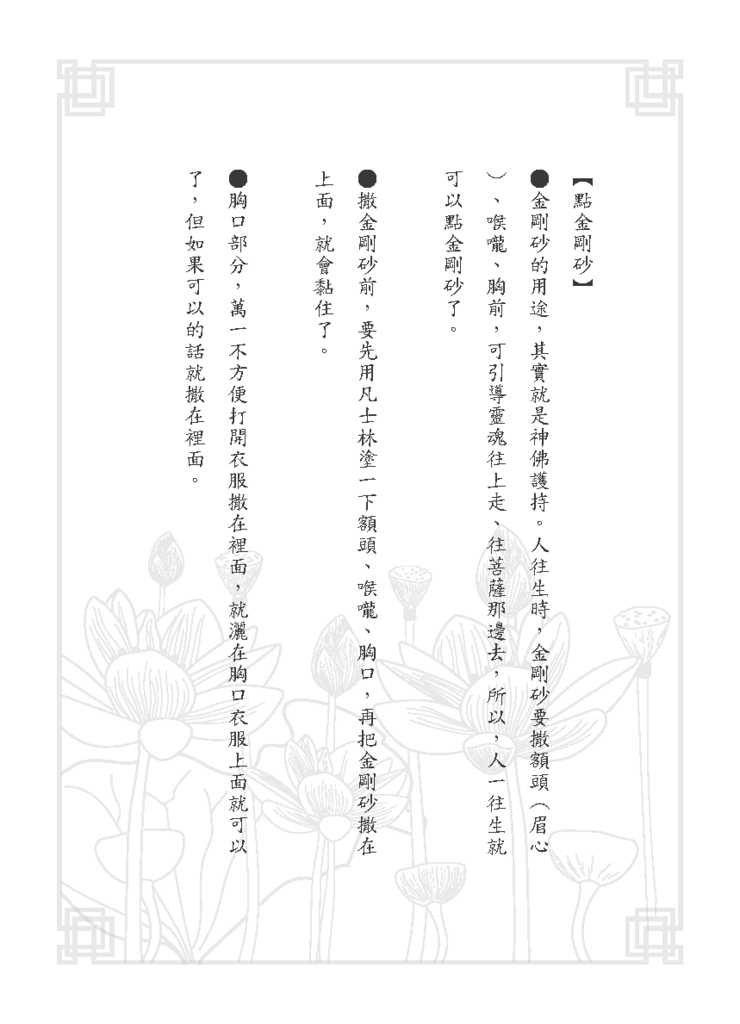 【點金剛砂】
●金剛砂的用途，其實就是神佛護持。人往生時，金剛砂要撒額頭（眉心
）、喉嚨、胸前，可引導靈魂往上走、往菩薩那邊去，所以，人一往生就
可以點金剛砂了。
●撒金剛砂前，要先用凡士林塗一下額頭、喉嚨、胸口，再把金剛砂撒在
上面，就會黏住了。
●胸口部分，萬一不方便打開衣服撒在裡面，就灑在胸口衣服上面就可以
了，但如果可以的話就撒在裡面。